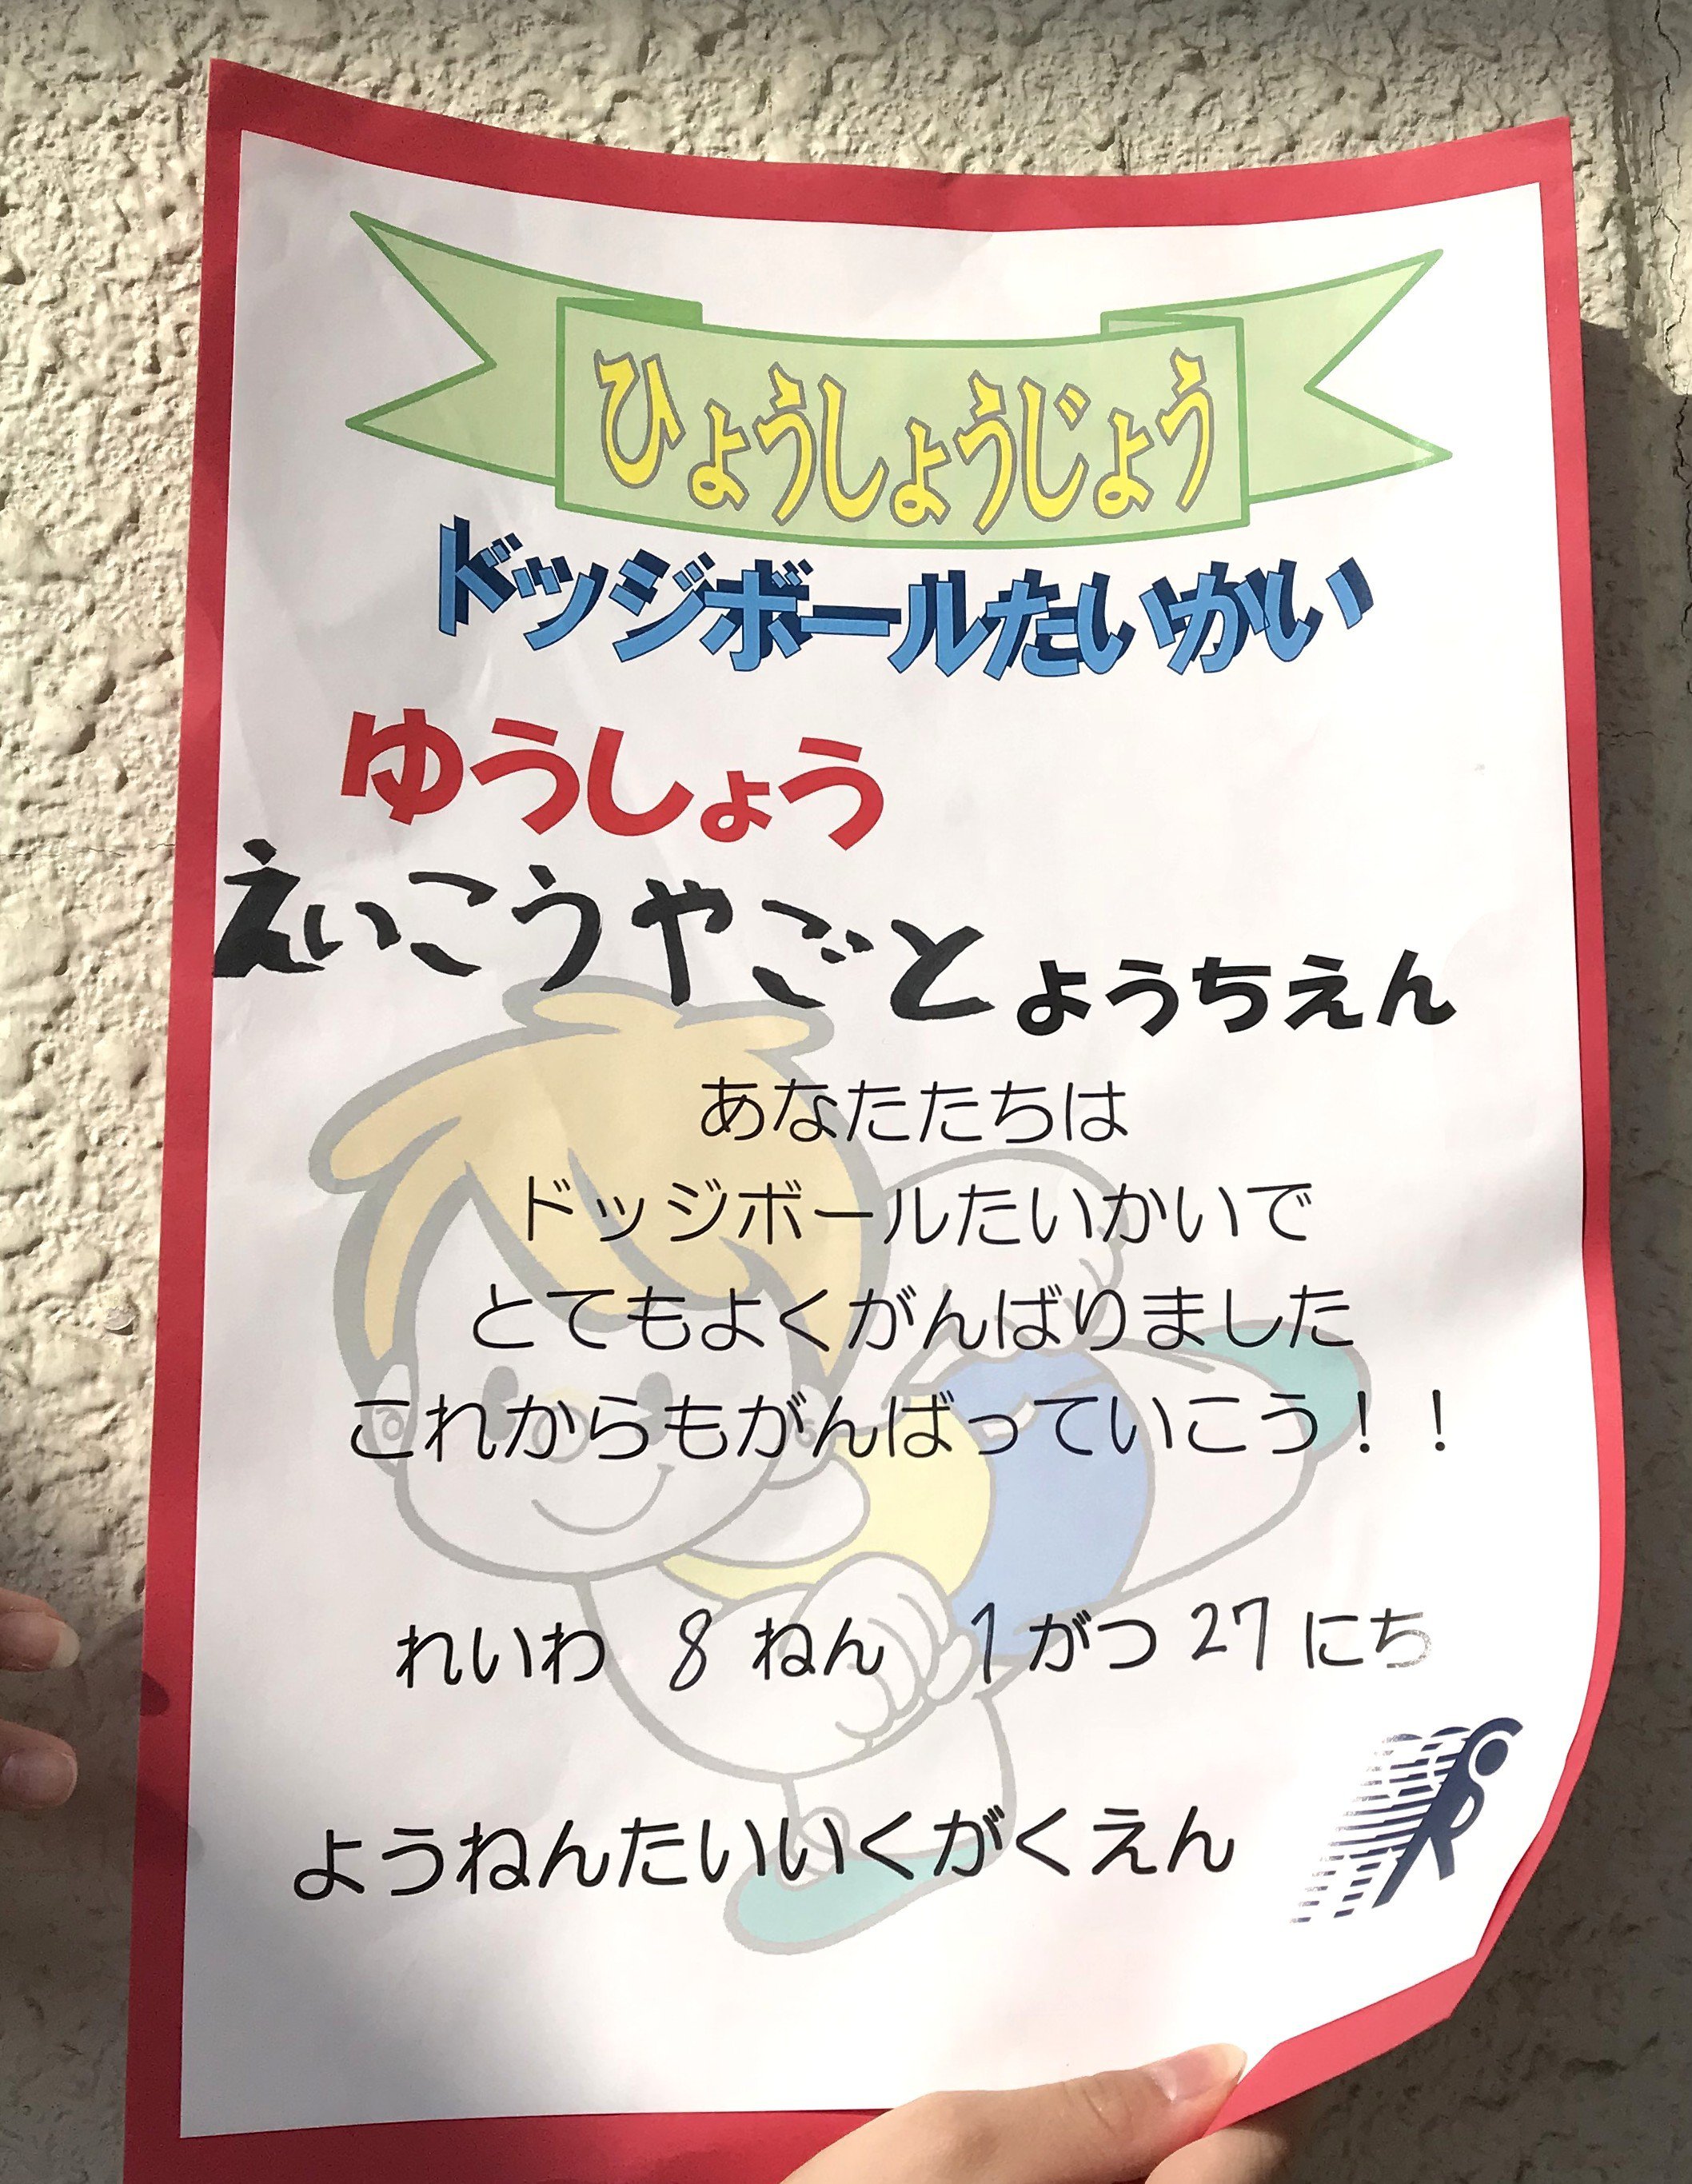 ひょうしょうじょう
ドッジボールたいかい
ゆうしょう
えいこうやごとようちえん
あなたたちは
ドッジボールたいかいで
とてもよくがんばりました
これからもがんばっていこう！！
れいわ 8 ねん 1 がつ 27 にち
ようねんたいいくがくえん